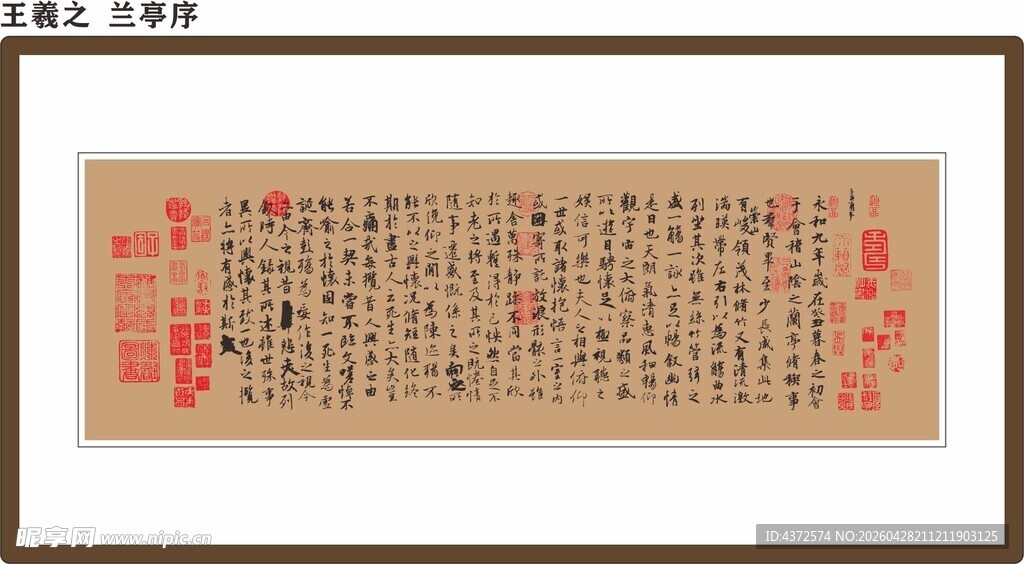 王羲之 兰亭序
永和九年歲在癸丑暮春之初會
于會稽山陰之蘭亭脩稧事
也群賢畢至少長咸集此地
有崇山峻領茂林脩竹又有清流激
湍暎帶左右引以為流觴曲水
列坐其次雖無絲竹管弦之
盛一觴一詠亦足以暢敘幽情
是日也天朗氣清惠風和暢仰
觀宇宙之大俯察品類之盛
所以遊目騁懷足以極視聽之
娛信可樂也夫人之相與俯仰
一世或取諸懷抱悟言一室之內
或因寄所託放浪形骸之外雖
趣舍萬殊靜躁不同當其欣
於所遇暫得於己怏然自足不
知老之將至及其所之既惓情
隨事遷感慨係之矣向之所
欣俛仰之閒以為陳迹猶不
能不以之興懷況脩短隨化終
期於盡古人云死生亦大矣豈
不痛哉每攬昔人興感之由
若合一契未嘗不臨文嗟悼不
能喻之於懷固知一死生為虛
誕齊彭殤為妄作後之視今
亦由今之視昔悲夫故列
敘時人錄其所述雖世殊事
異所以興懷其致一也後之攬
者亦將有感於斯文
昵享网 www.nipic.cn
ID:4372574 NO:20260428211211903125